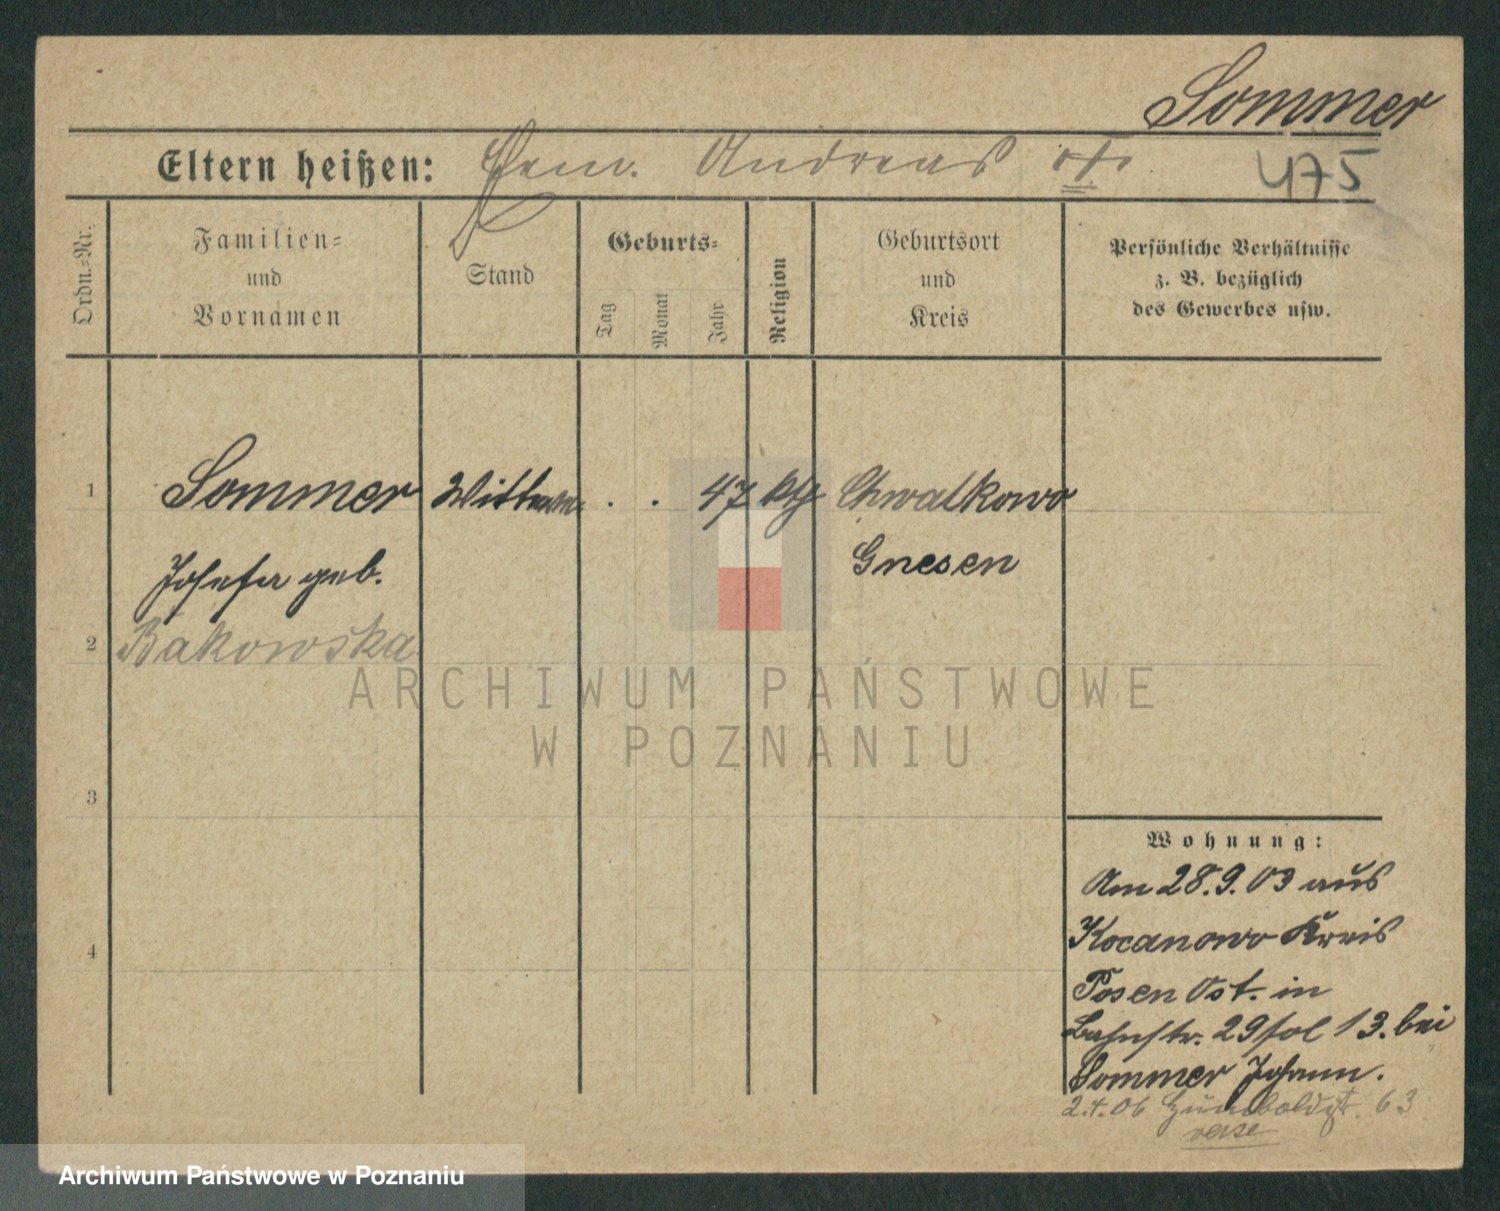 Sommer
Eltern heißen: Gem. Andreas
475
Ordn.-Nr.
Familien-
und
Vornamen
Stand
Geburts-
Tag
Monat
Jahr
Religion
Geburtsort
und
Kreis
Persönliche Verhältnisse
z. B. bezüglich
des Gewerbes usw.
1
Sommer
Wittwe
. . 47
kth
Chwalkowo
Josefa geb.
Gnesen
2
Bakowska
ARCHIWUM PAŃSTWOWE
W POZNANIU
3
Wohnung:
Am 28.9.03 aus
4
Kocanowo Kreis
Posen Ost. in
Bahnstr. 29 fol 13. bei
Sommer Johann.
2.4.06 Humboldtst. 63
verse
Archiwum Państwowe w Poznaniu